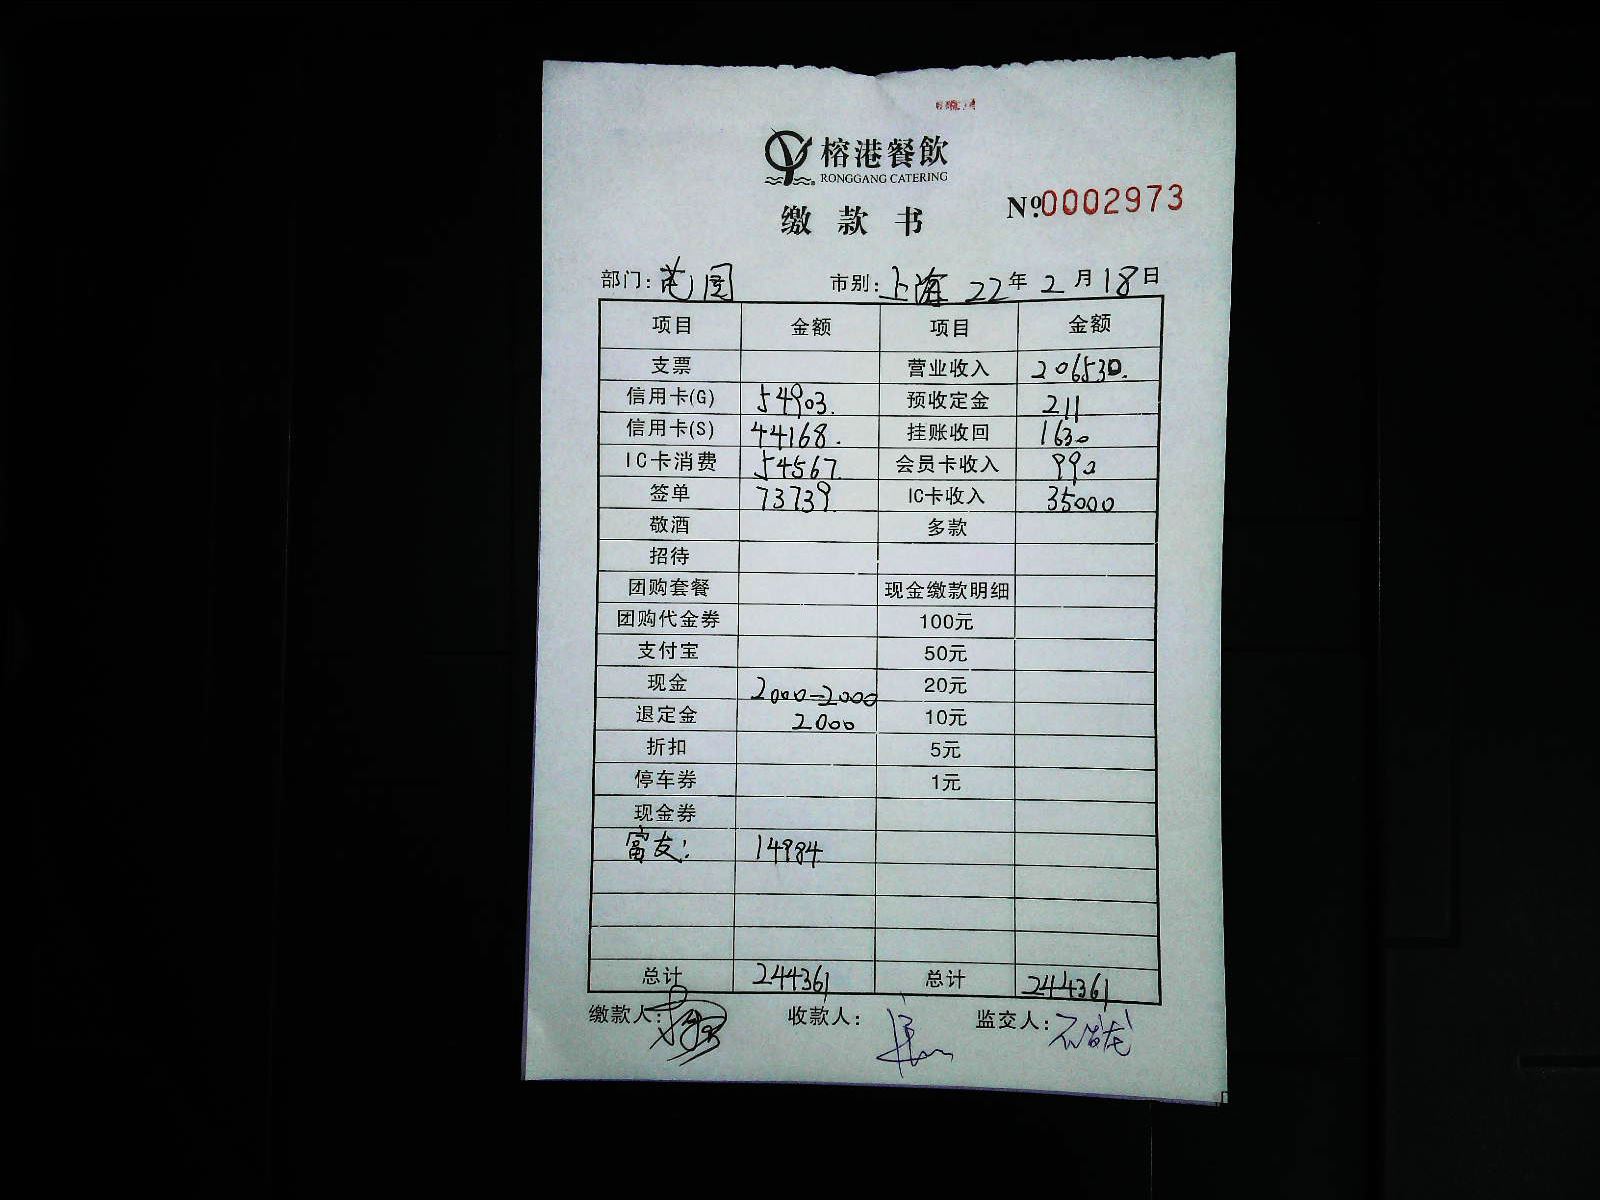 榕港餐飲
RONGGANG CATERING
缴款书
Nº0002973
部门: 市别: 上海 22年2月18日
项目 金额 项目 金额
支票 营业收入 206530.
信用卡(G) 54903. 预收定金 211
信用卡(S) 44168. 挂账收回 1630
IC卡消费 54567. 会员卡收入 990
签单 73739. IC卡收入 35000
敬酒 多款
招待
团购套餐 现金缴款明细
团购代金券 100元
支付宝 50元
现金 2000-2000 20元
退定金 2000 10元
折扣 5元
停车券 1元
现金券
富友: 14984
总计 244361 总计 244361
缴款人: 收款人: 监交人: